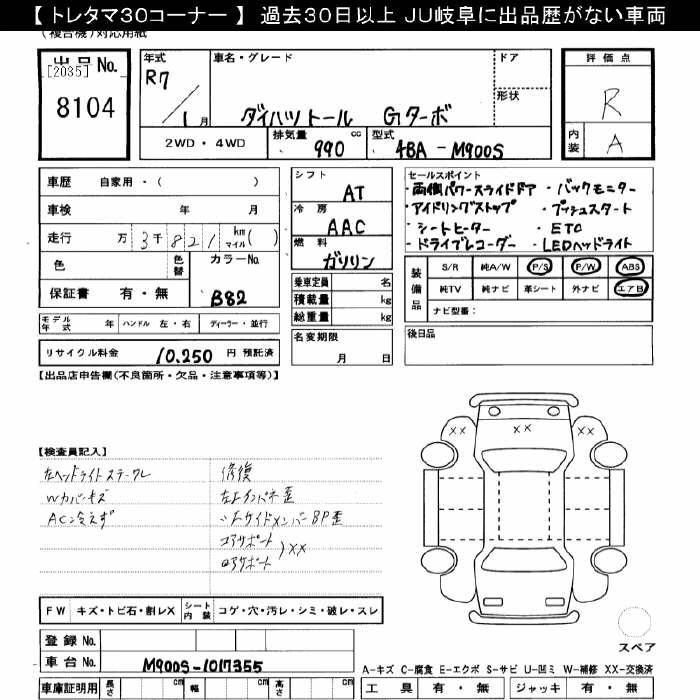 【 トレタマ30コーナー 】 過去30日以上 JU岐阜に出品歴がない車両
(複合機)対応用紙
出品 No.
[2035]
8104
年式
R7
1月
車名・グレード
ダイハツ トール Gターボ
ドア
形状
2WD・4WD
排気量 990 cc
型式 4BA-M900S
評価点
R
内装 A
車歴 自家用・( )
車検 年 月
走行 万 3千821 km マイル ( )
色
色替
カラーNo.
B82
保証書 有・無
シフト AT
冷房 AAC
燃料 ガソリン
乗車定員 名
積載量 kg
総重量 kg
セールスポイント
・両側パワースライドドア ・バックモニター
・アイドリングストップ ・プッシュスタート
・シートヒーター ・ETC
・ドライブレコーダー ・LEDヘッドライト
装備品
S/R 純A/W P/S P/W ABS
純TV 純ナビ 革シート 外ナビ エアB
ナビ型番:
モデル年式 年 ハンドル 左・右 ディーラー・並行
名変期限
月 日
後日品
リサイクル料金 10,250 円 預託済
【出品店申告欄(不良箇所・欠品・注意事項等)】
【検査員記入】
左ヘッドライトステークレ
Wカバーキズ
AC冷えず
修復
左エインパネ歪
サイドメンバーBP歪
コアサポート
ロアサポート
)XX
XX
XX
XX
FW キズ・トビ石・割レX シート内装 コゲ・穴・汚レ・シミ・破レ・スレ
登録 No.
車台 No. M900S-1017355
車庫証明用 長さ cm 幅 cm 高さ cm
スペア
A-キズ C-腐食 E-エクボ S-サビ U-凹ミ W-補修 XX-交換済
工具 有・無 ジャッキ 有・無